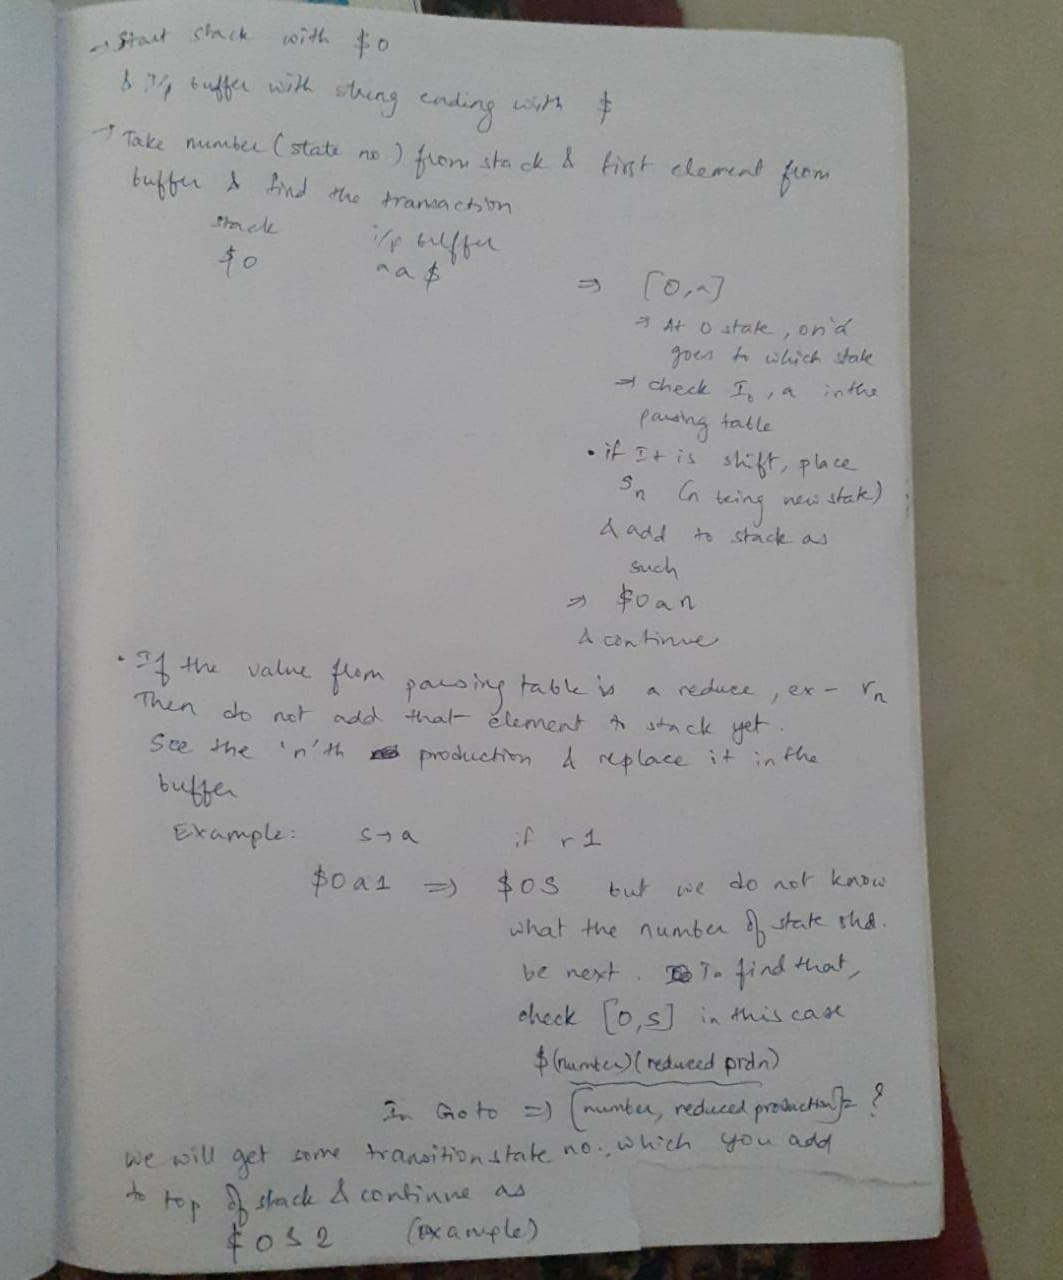 → Start stack with $0
& I/p buffer with string ending with $
→ Take number (state no) from stack & first element from
buffer & find the transaction
stack i/p buffer
$0 aa$
⇒ [0,a]
→ At 0 state, on 'a'
goes to which state
→ check I₀, a in the
parsing table
• if It is shift, place
Sn (n being new state)
& add to stack as
such
⇒ $0an
& continue
• If the value from parsing table is a reduce, ex - rn
Then do not add that element to stack yet.
See the 'n'th production & replace it in the
buffer
Example: S→a if r1
$0a1 ⇒ $0S but we do not know
what the number of state shd.
be next. To find that,
check [0,S] in this case
$(number)(reduced prdn)
In Goto ⇒ [number, reduced production] = ?
we will get some transition state no., which you add
to top of stack & continue as
$0S2 (example)